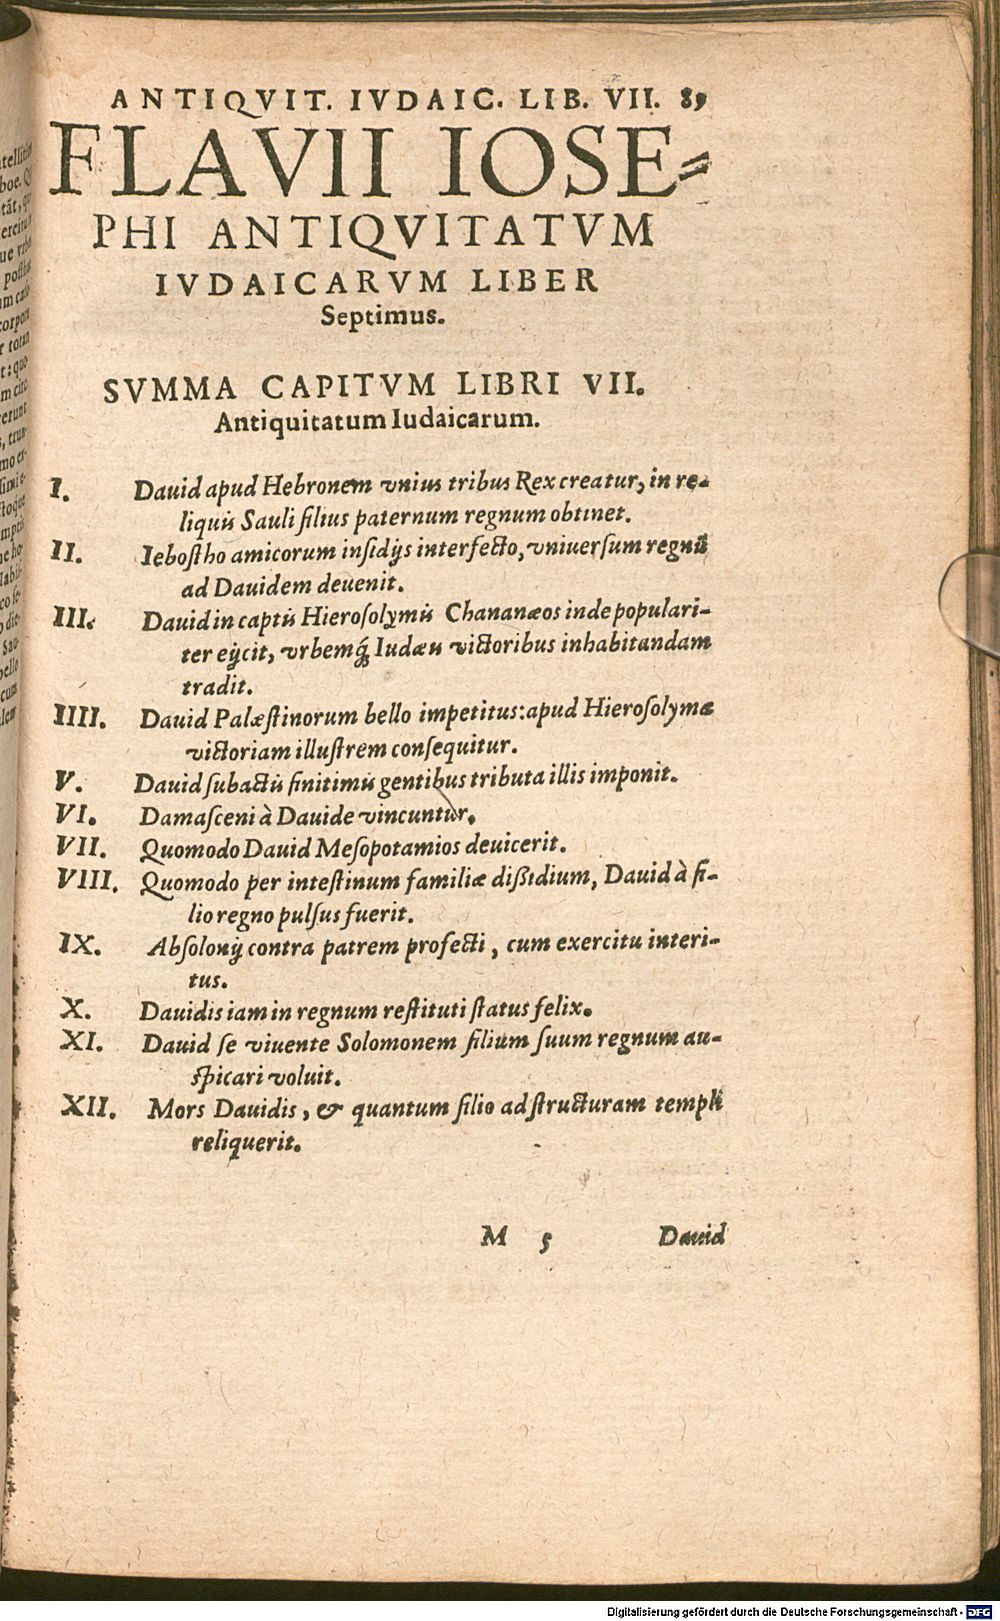 ANTIQVIT. IVDAIC. LIB. VII. 89
FLAVII IOSE-
PHI ANTIQVITATVM
IVDAICARVM LIBER
Septimus.
SVMMA CAPITVM LIBRI VII.
Antiquitatum Iudaicarum.
I. Dauid apud Hebronem vnius tribus Rex creatur, in re-
liquis Sauli filius paternum regnum obtinet.
II. Iebostho amicorum insidijs interfecto, vniuersum regnū
ad Dauidem deuenit.
III. Dauid in captis Hierosolymis Chananæos inde populari-
ter eijcit, vrbemq́; Iudæis victoribus inhabitandam
tradit.
IIII. Dauid Palæstinorum bello impetitus: apud Hierosolyma
victoriam illustrem consequitur.
V. Dauid subactis finitimis gentibus tributa illis imponit.
VI. Damasceni à Dauide vincuntur.
VII. Quomodo Dauid Mesopotamios deuicerit.
VIII. Quomodo per intestinum familiæ dißidium, Dauid à fi-
lio regno pulsus fuerit.
IX. Absolonij contra patrem profecti, cum exercitu interi-
tus.
X. Dauidis iam in regnum restituti status felix.
XI. Dauid se viuente Solomonem filium suum regnum au-
spicari voluit.
XII. Mors Dauidis, & quantum filio ad structuram templi
reliquerit.
M 5 Dauid
Digitalisierung gefördert durch die Deutsche Forschungsgemeinschaft - DFG